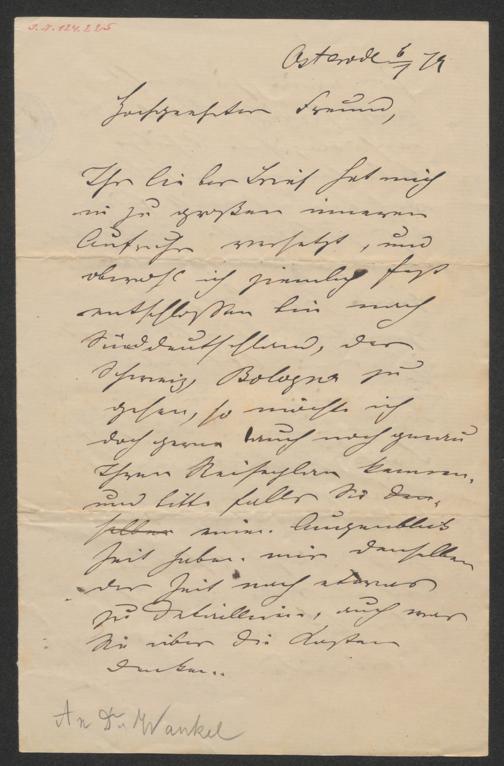 J.N. 124.225
Osterode 6/7 79
Hochgeehrter Freund,
Ihr lieber Brief hat mich
in zu großen inneren
Aufruhr versetzt, und
obwohl ich ziemlich fest
entschlossen bin nach
Süddeutschland, der
Schweiz, Bologna zu
gehen, so möchte ich
doch gerne auch noch genau
Ihren Reiseplan kennen,
und bitte falls Sie den-
selben einen Augenblick
Zeit haben, mir denselben
der Zeit nach etwas
zu detailliren, auch was
Sie über die Kosten
denken.
An Dr. Wankel